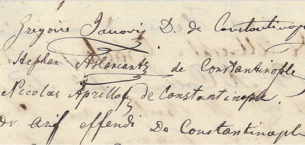 Gregoire Janovi D. de Constantinop
Stephan Aslaniantz de Constantinople
Nicolas Aprillof de Constantinople.
dr Arif effendi De Constantinople